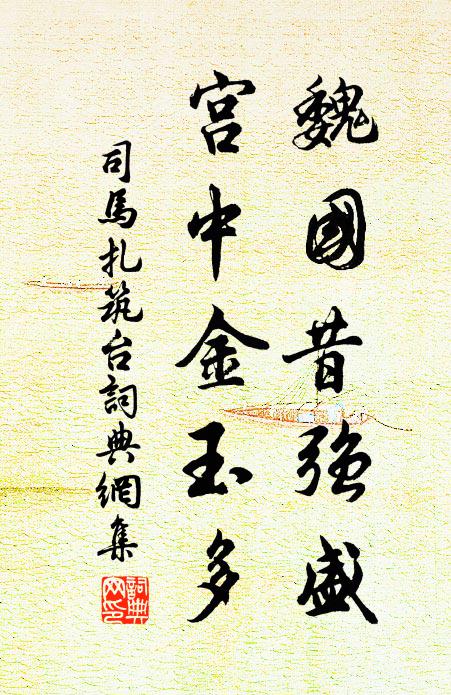 魏國昔強盛
宮中金玉多
司馬扎筑台詞典網集
詞典網印